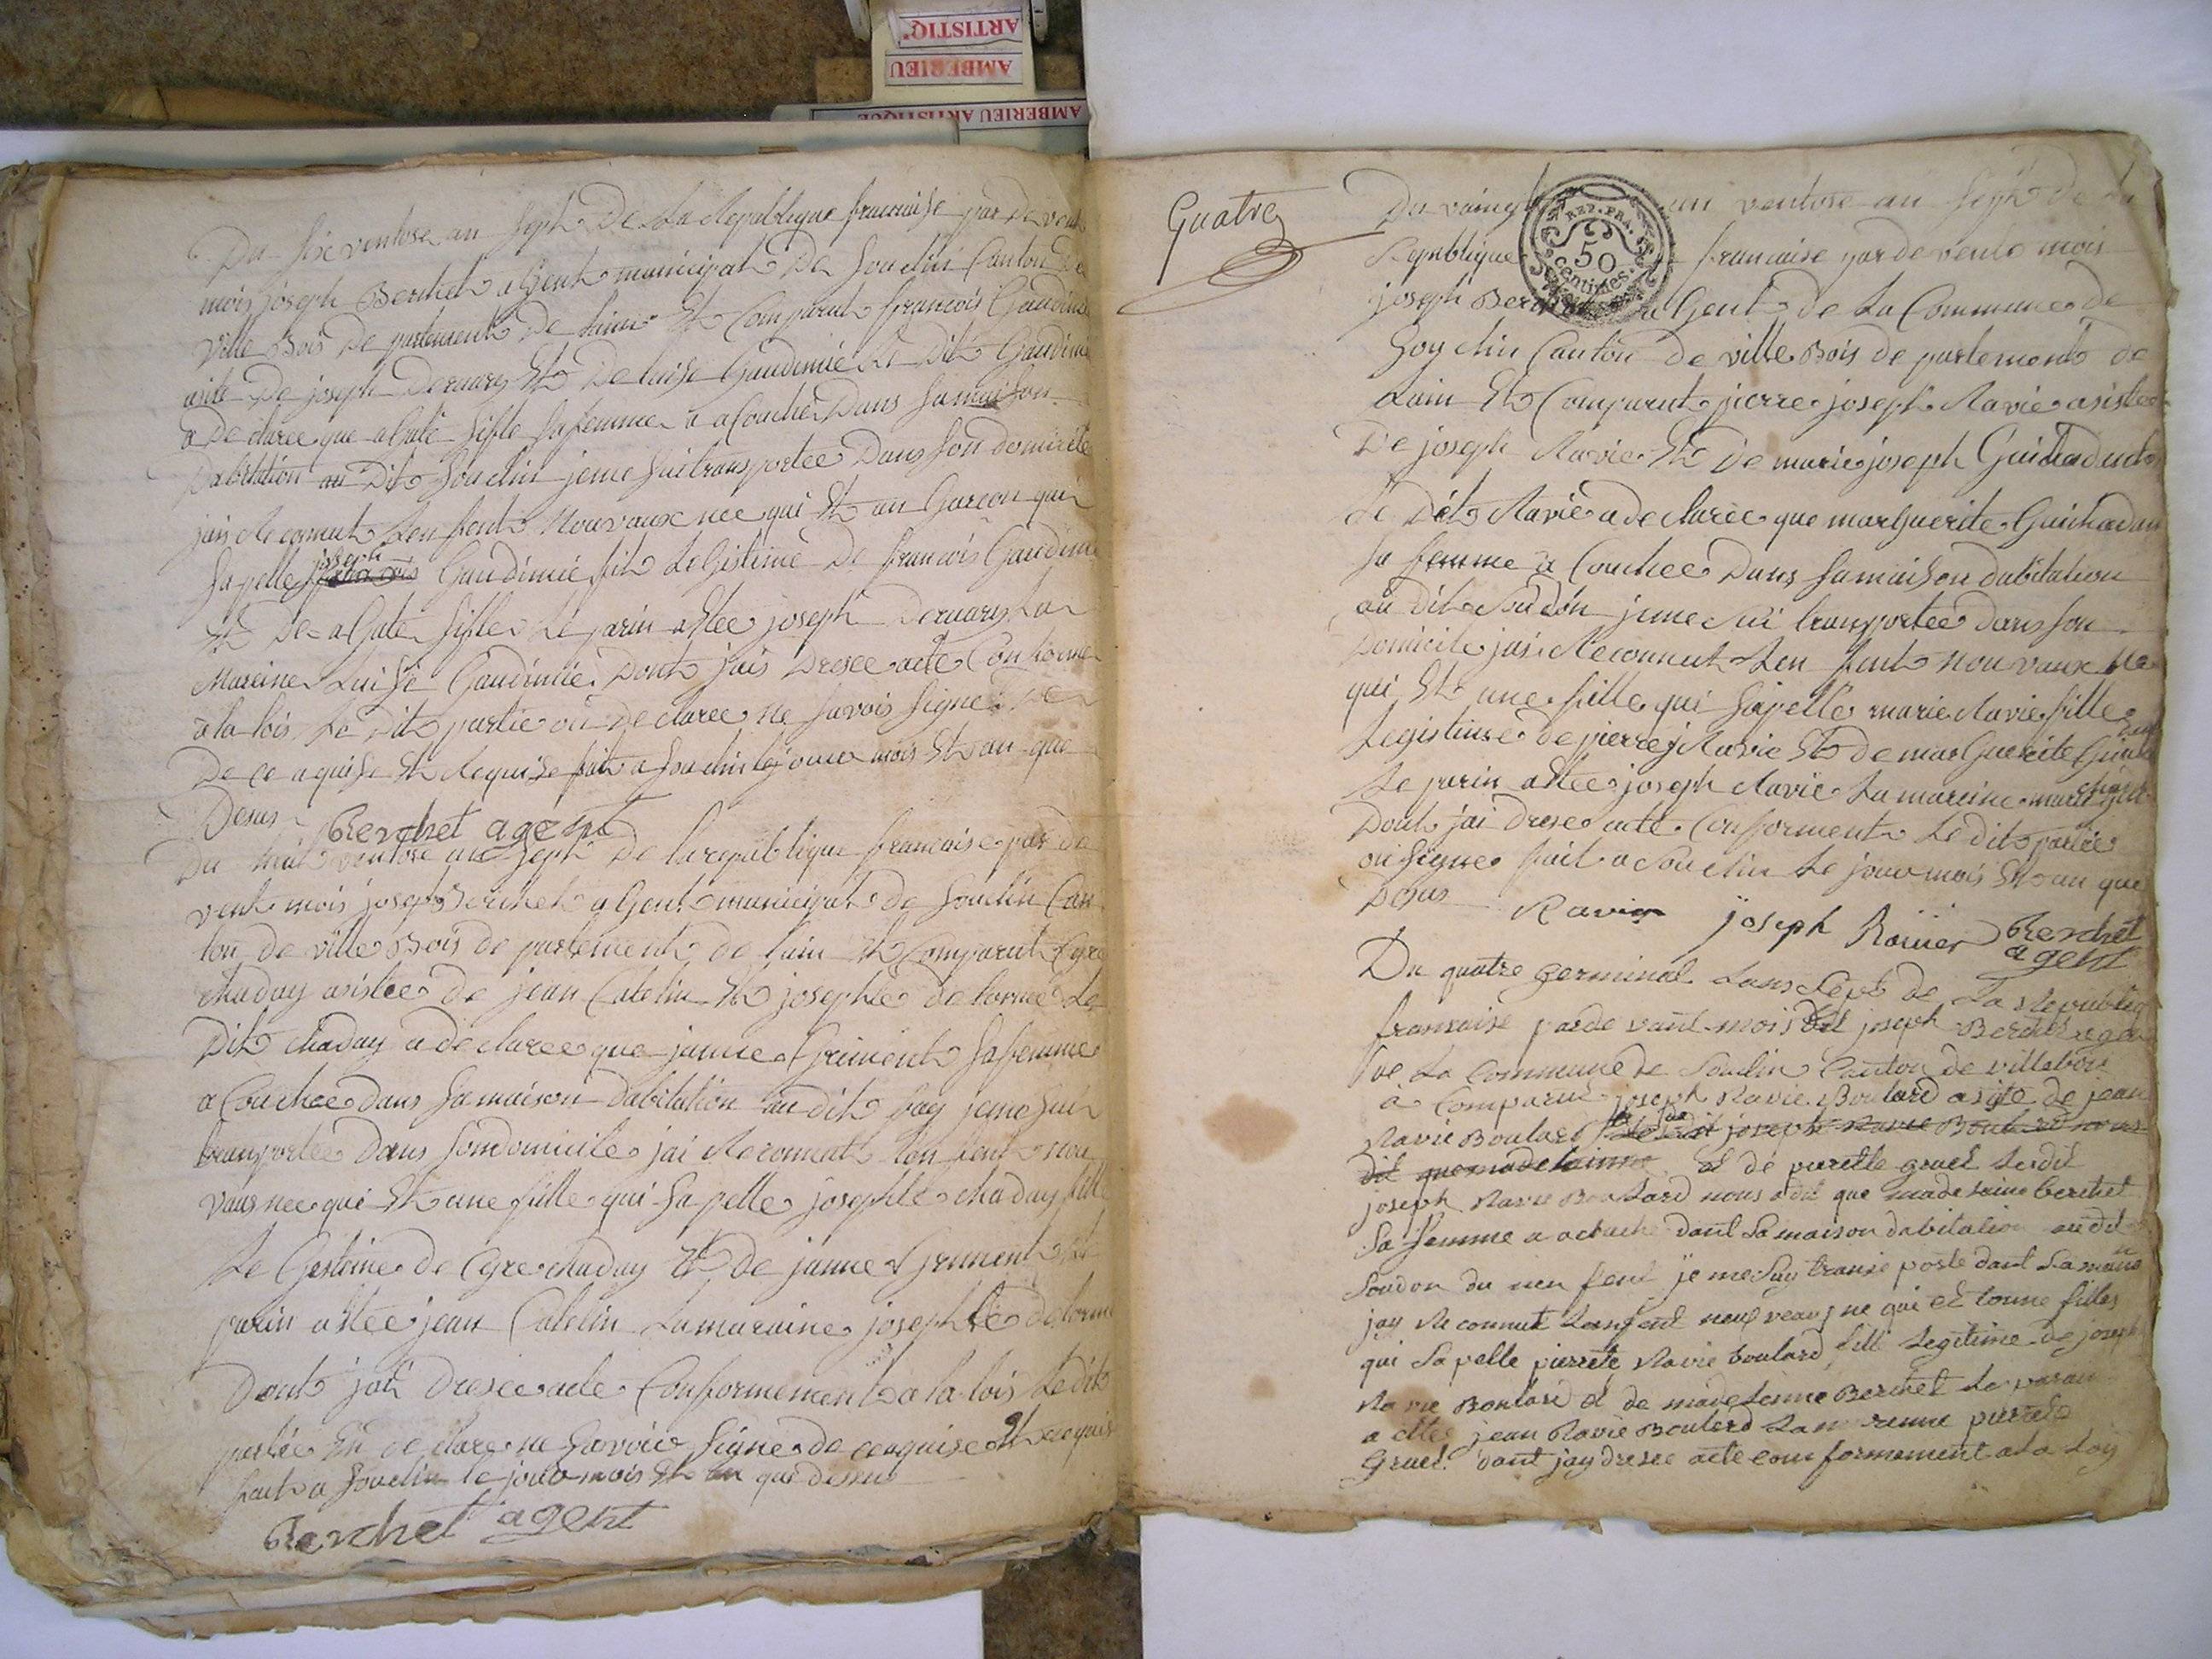 ARTISTIQ'
AMBERIEU
AMBERIEU ARTISTIQUE
Du six ventose an seph De La Republique francaise par De vent
mois joseph Berchet agent municipal De Souclin Canton De
ville Bois De partement De lain Et Comparut francois Gaudime
asite De joseph Deruary Et De luise Gaudimie Le Dit Gaudime
a De claree que agate sifle sa femme a acouchée Dans sa maison
Dabitation au Dit Souclin jeme sui transportee Dans son domicile
jais Reconnut Len fent Nouvaux nee qui Et un Garcon qui
sapelle joseph Gaudimie fils LeGistime De francois Gaudime
Et De agate sifle Le parin a Etee joseph Deruary La
Mareine Luise Gaudimie Dont jais Dresee acte Con forme
a la lois Le Dit partie on De claree ne savois signe
De ce aquise Et Requise fait a Souclin le jour mois Et an que
Desus Berchet agent
Du huit ventose an seph De la republique francaise par de
vent mois joseph Berchet agent municipal de Souclin Can
ton de ville Bois de partement de lain Et Comparut
chaduy asistee de jean Catelin Et josephte delorme Le
Dit chaduy a de claree que janne Griment sa femme
a Couchee dans sa maison dabitation au dit jeme sui
transportee Dans son domicile jai Reconnut len fent nou
vaus nee qui Et une fille qui sapelle josephte chaduy fille
Le Gestime de chaduy Et de janne Griment Le
parin a Etee jean Catelin La maraine josephte delorme
Dont jai Dresee acte Conformement a la lois Le dit
partie on de clare ne savoir signe de ce aquise Et requis
fait a Souclin le jour mois Et an que desus
Berchet agent
Quatre
Du vaingt un ventose an seph De La
Republique francaise par de vent mois
joseph Berchet agent de La Commune de
REP. FRA.
50
centimes
Souclin Canton de ville Bois de partement de
Lain Et Comparut pierre joseph Ravie asistee
De joseph Ravie Et De marie joseph Guichadent
Le Dit Ravie a de claree que marguerite Guichadan
sa femme a Couchee Dans sa maison dabitation
au Dit Soudon jeme sui transportee dans son
Domicile jais Reconnut Len fent nouvaux Ne
qui Et une fille qui sapelle marie Ravie fille
Legistime de pierre j Ravie Et de marguerite Guicha
Le parin a Etee joseph Ravie La mareine marie
Dont jai Drese acte Conforment Le dit partie
on signe fait a Souclin Le jour mois Et an que
Desus Ravier joseph Ravier Berchet
agent
Du quatre germinal Lans Sept de La Republiq
francaise parde vant mois joseph Berchet agen
de La Commune de Souclin Canton de villebois
a Comparut joseph Ravie Boulard asiste de jean
Ravie Boulard joseph Ravie Boulard nous
dit que madelainne Et de pierette gruel Ledit
joseph Ravie Boulard nous a dit que madelaine berchet
Sa femme a acouche dant Sa maison dabitation audit
Soudon du nen fent je me suy trans porte dant Sa maison
jay Reconnut Lenfent neuf veaux ne qui et toune filles
qui Sa pelle pierrete Ravie boulard fille Legitime de joseph
Ravie Boulard et de madelenne Berchet Le paran
a ette jean Ravie Boulard La marenne pierrete
Gruel dont jay dresee acte conformement a la Loy